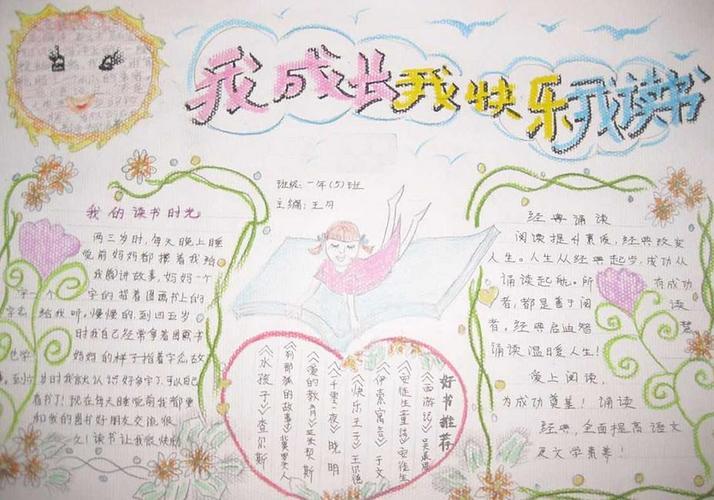 我成长我快乐我读书
班级:一年(5)班
主编:王月
我的读书时光
两三岁时,每天晚上睡
觉前妈妈都搂着我给
我脚讲故事,妈妈一个
字一个字的指着图画书上的
字念给我听,慢慢的,到四五岁
时我自己经常拿着图画书
也学妈妈的样子指着字念故
事,到六岁时我就认识好多字了,可以自己
看书了!现在每天睡觉前我都要
和我的图书好朋友交流很
久!读书让我很快乐
好书推荐
《西游记》吴承恩
《安徒生童话》安徒生
《伊索寓言》于文
《快乐王子》王尔德
《一千零一夜》晓明
《爱的教育》
《列那狐的故事》
《水孩子》查尔斯
经典诵读
阅读提升素质,经典改变
人生。人生从经典起步,成功从
诵读起航。所有成功
者,都是善于阅读
者,经典启迪智慧
诵读温暖人生!
爱上阅读,
为成功奠基!诵读
经典,全面提高语文
及文学素养!